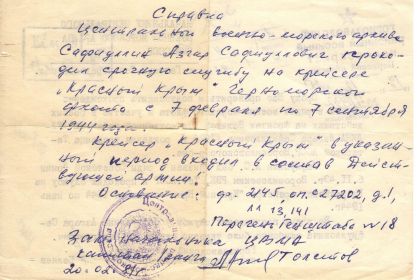 Справка
Центральный военно-морского архива
Сафиуллин Азгар Сафиуллович проходил
дил срочную службу на крейсере
"Красный Крым" Черноморского
флота с 7 февраля по 7 сентября
1944 года.
Крейсер "Красный Крым" в указан-
ный период входил в состав Дейст-
вующей армии!
Основание: ф. 2145, оп. 027202, д. 1,
лл 13, 141
Перечень Генштаба № 18
Зам. начальника ЦВМА
капитан I ранга Толстов
20.02.